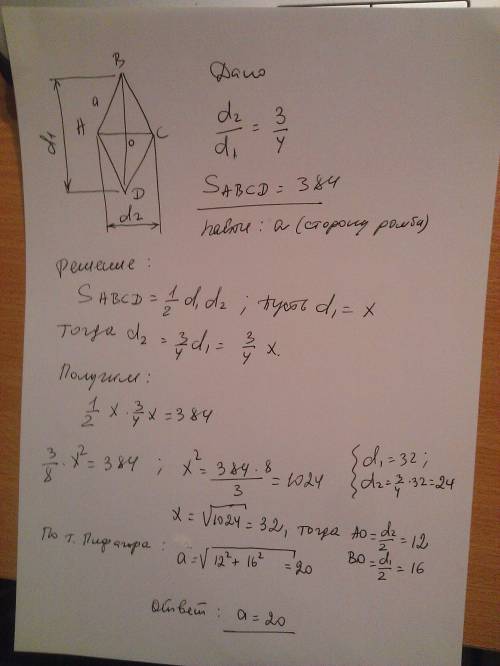 B
a
A
C
O
D
d₁
d₂
Дано
d₂/d₁ = 3/4
S ABCD = 384
Найти: a (сторону ромба)
решение:
S ABCD = 1/2 d₁ d₂ ; пусть d₁ = x
тогда d₂ = 3/4 d₁ = 3/4 x.
Получим:
1/2 x · 3/4 x = 384
3/8 · x² = 384 ; x² = 384 · 8 / 3 = 1024
{ d₁ = 32 ;
d₂ = 3/4 · 32 = 24
x = √1024 = 32, тогда AO = d₂/2 = 12
BO = d₁/2 = 16
По т. Пифагора :
a = √12² + 16² = 20
Ответ : a = 20